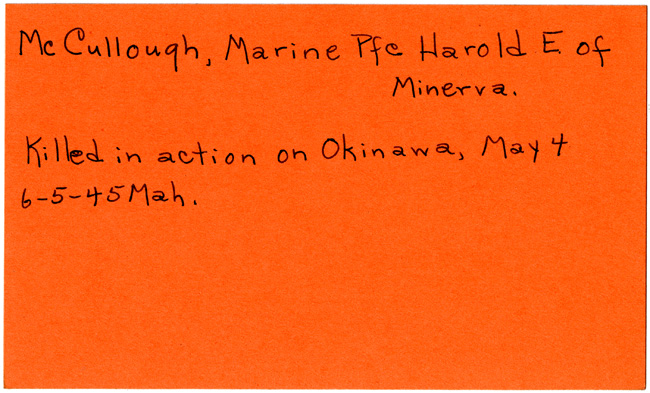 McCullough, Marine Pfc Harold E of
Minerva.
Killed in action on Okinawa, May 4
6-5-45 Mah.